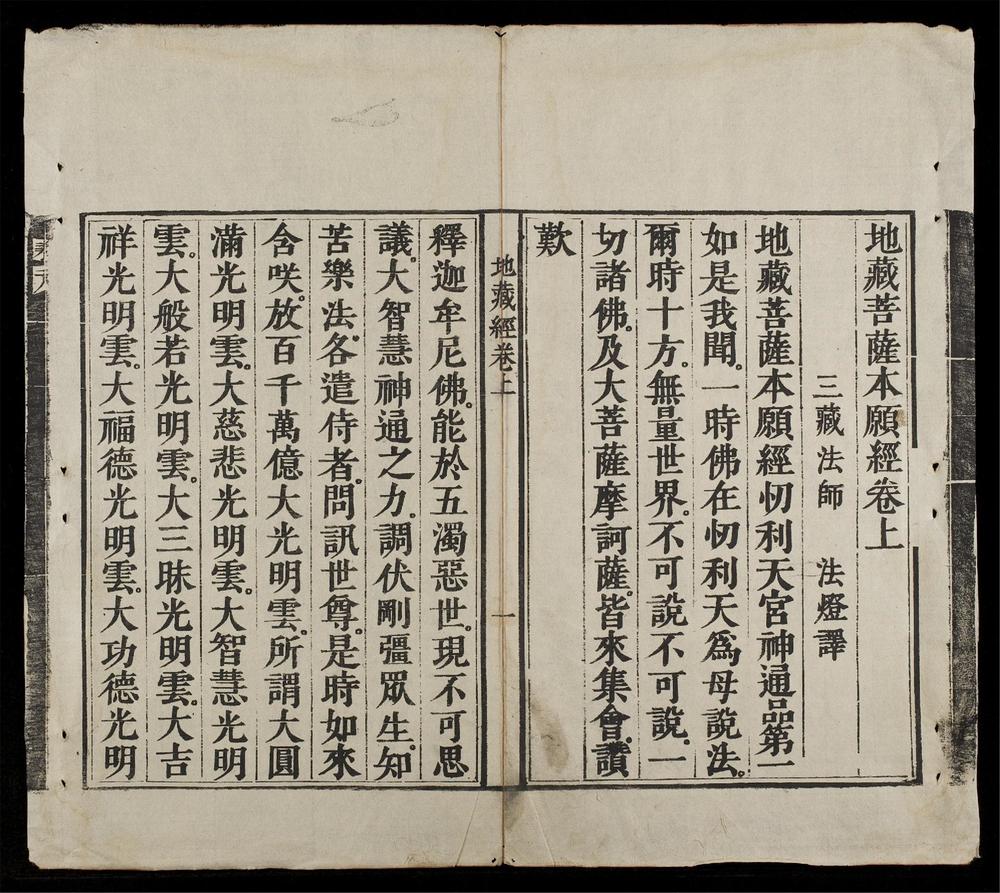 地藏菩薩本願經卷上
三藏法師 法燈譯
地藏菩薩本願經忉利天宮神通品第一
如是我聞。一時佛在忉利天爲母說法。
爾時十方。無量世界。不可說不可說。一
切諸佛。及大菩薩摩訶薩。皆來集會。讚
歎
地藏經卷上 一
釋迦牟尼佛。能於五濁惡世。現不可思
議。大智慧神通之力。調伏剛彊眾生。知
苦樂法。各遣侍者。問訊世尊。是時如來
含咲。放百千萬億大光明雲。所謂大圓
滿光明雲。大慈悲光明雲。大智慧光明
雲。大般若光明雲。大三昧光明雲。大吉
祥光明雲。大福德光明雲。大功德光明